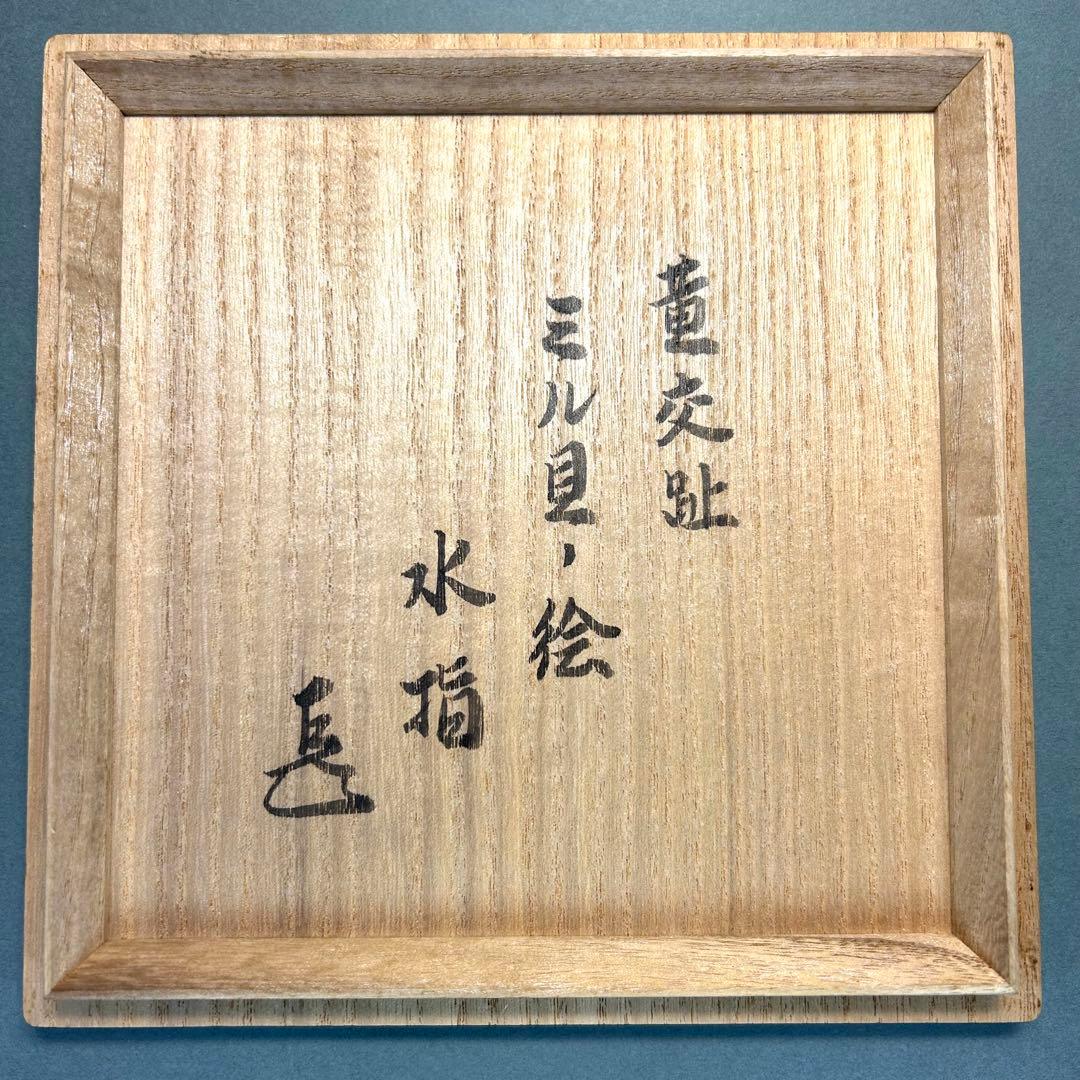 黄交趾
ミル貝ノ絵
水指